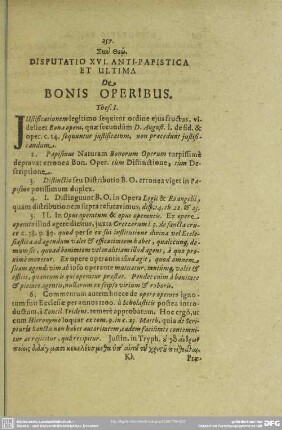 257.
Σὺν Θεῷ.
DISPUTATIO XVI. ANTI-PAPISTICA
ET ULTIMA
De
BONIS OPERIBUS.
Thes. I.
Justificationem legitimo sequitur ordine ejus fructus, vi-
delicet Bona opera, quæ secundùm D. August. l. de fid. &
oper. c. 14. sequuntur justificatum, non præcedunt justifi-
candum.
2. Papistæ Naturam Bonorum Operum turpissimè
depravat erronea Bon. Oper. tùm Distinctione, tùm De-
scriptione.
3. Distinctio seu Distributio B. O. erronea viget in Pa-
pismo potissimum duplex.
4. I. Distinguunt B. O. in Opera Legis & Evangelii,
quam distributionem supra refutavimus,
5. II. In Opus operatum & opus operantis. Ex opere
operato illud agere dicitur, juxta Gretzerum l. 1. de sancta cru-
ce c. 58. p. 89. quod per se ex sui institutione divina vel Ecclesi-
astica ad agendum valet & efficacitatem habet, qualiscunq; de-
mum sit, quoad bonum vel malum illud agens, à quo pro-
ximè movetur. Ex opere operantis illud agit, quod omnem
suam agendi vim ab ipso operante mutuatur, tantúmq; valet &
efficit, quantùm is qui operatur præstat. Pendet enim à bonitate
& pietate agentis, nullarum ex se ipso virium & roboris.
6. Commentum autem hocce de opere operato igno-
tum fuit Ecclesiæ per annos 1000. à Scholasticis postea intro-
ductum, à Concil. Trident. temerè approbatum. Hoc ergò, ut
cum Hieronymo loquar ex com. 9. in c. 23. Matth. quia de Scri-
pturis sanctis non habet autoritatem, eadem facilitate contemni-
tur ac rejicitur, quâ recipitur. Justin. in Tryph.
Kk